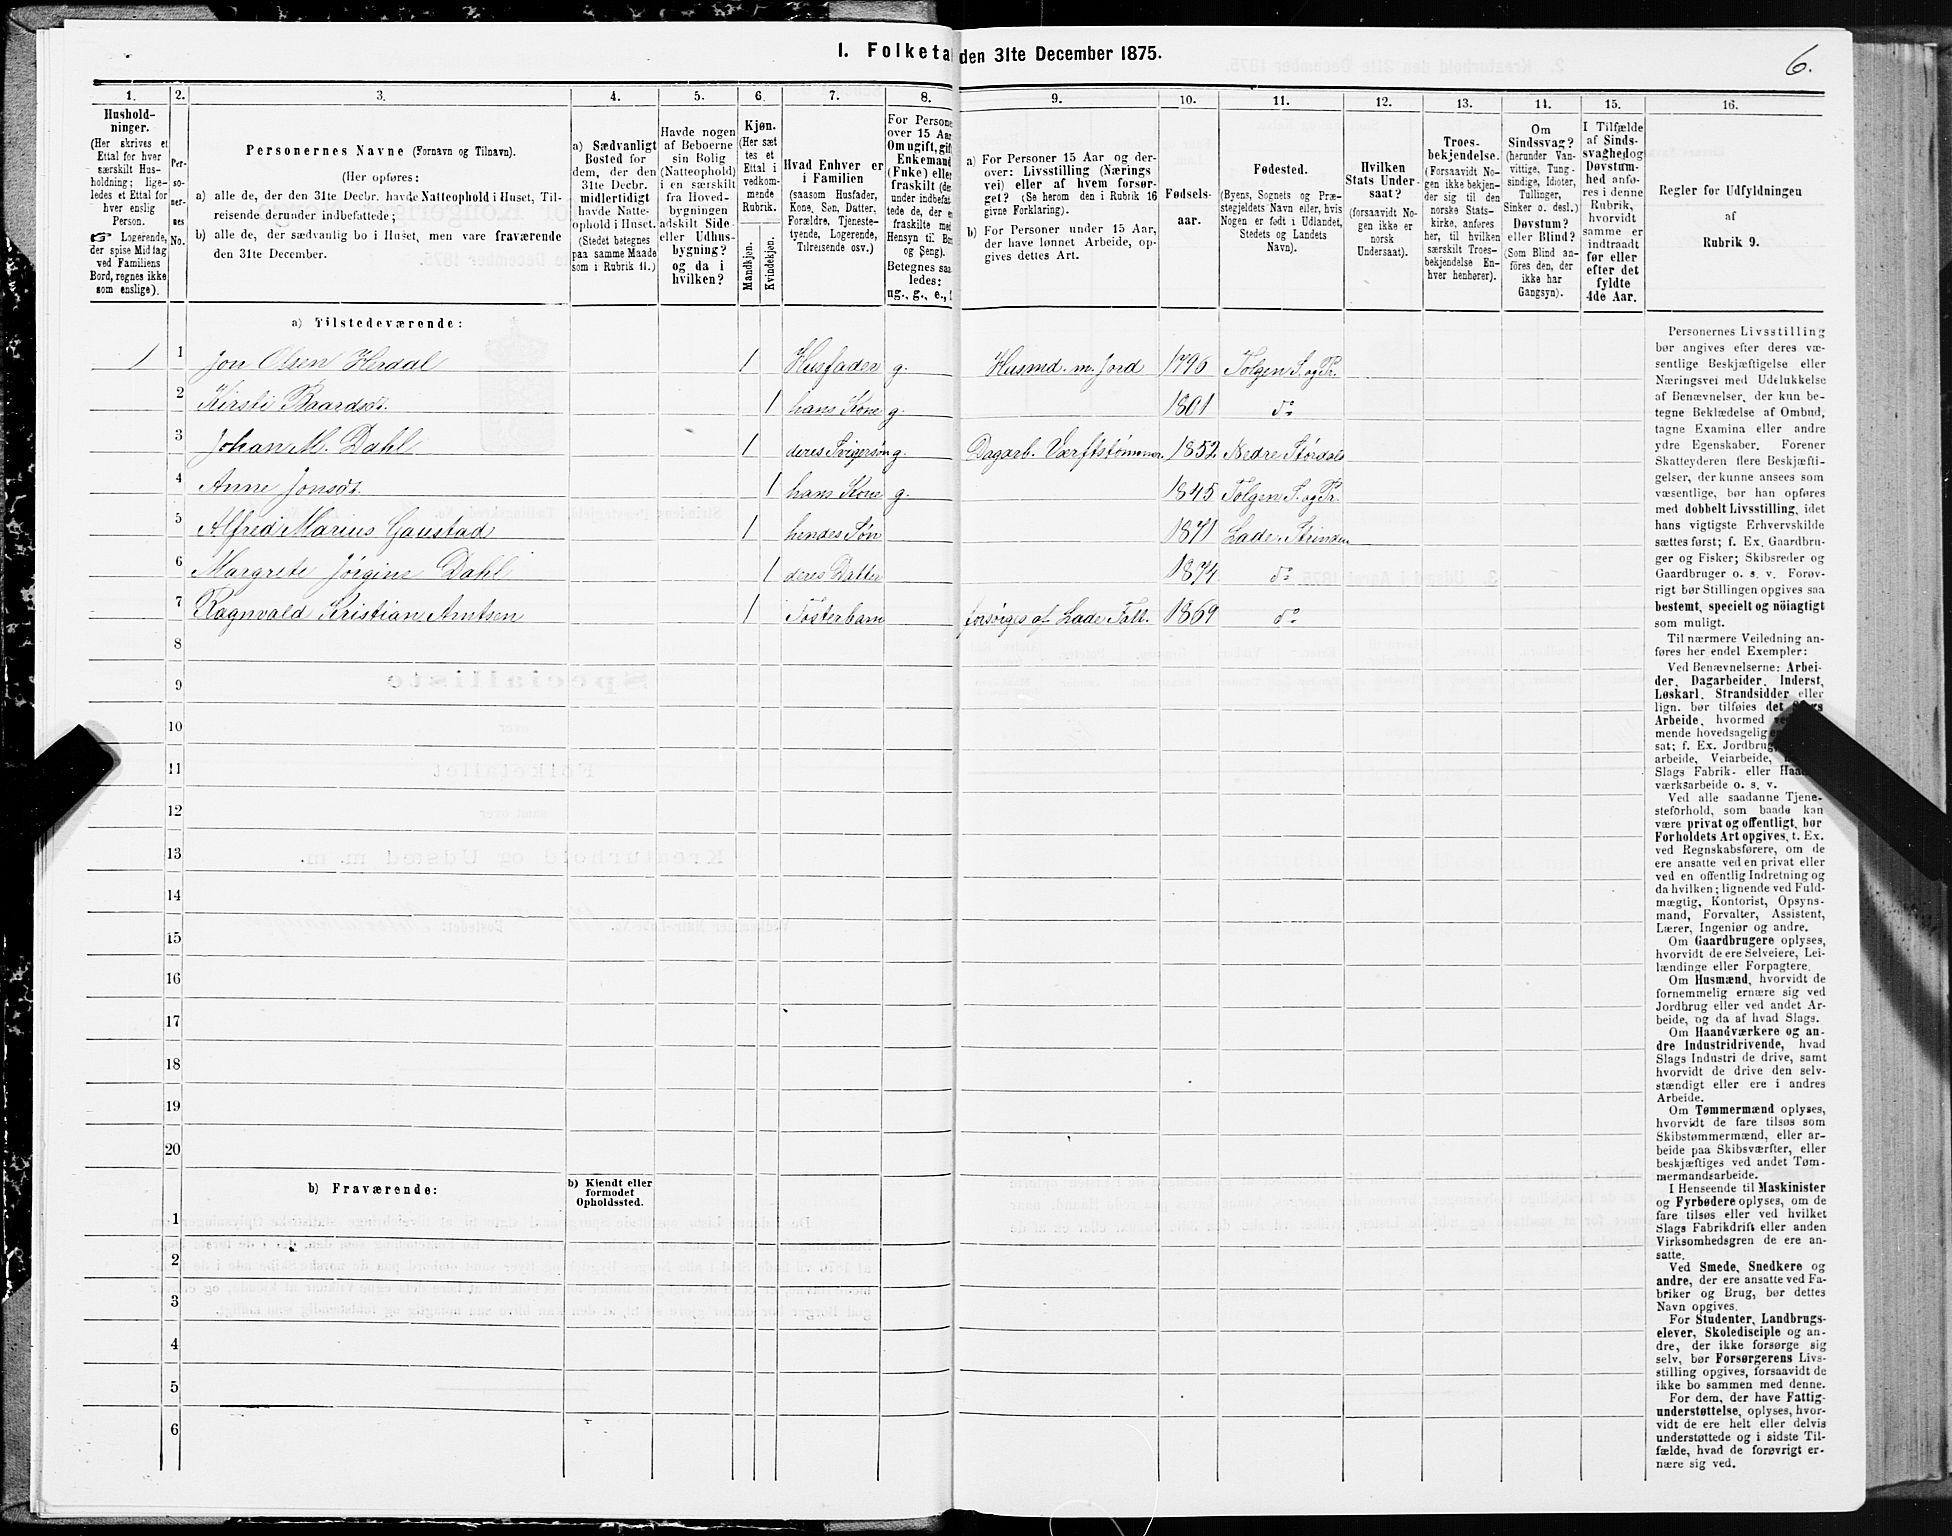 I. Folketa den 31te December 1875.
6.
1. 2. 3. 4. 5. 6. 7. 8. 9. 10. 11. 12. 13. 14. 15. 16.
Hushold-
ninger.
(Her skrives et
Ettal for hver
særskilt Hus-
holdning; lige-
ledes et Ettal for
hver enslig
Person.
☞ Logerende,
der spise Middag
ved Familiens
Bord, regnes ikke
som enslige).
Per-
so-
ner-
nes
No.
Personernes Navne (Fornavn og Tilnavn).
(Her opføres:
a) alle de, der den 31te Decbr. havde Natteophold i Huset, Til-
reisende derunder indbefattede;
b) alle de, der sædvanlig bo i Huset, men vare fraværende
den 31te December.
a) Sædvanligt
Bosted for
dem, der den
31te Decbr.
midlertidigt
havde Natte-
ophold i Huset.
(Stedet betegnes
paa samme Maade
som i Rubrik 11.)
Havde nogen
af Beboerne
sin Bolig
(Natteophold)
i en særskilt
fra Hoved-
bygningen
adskilt Side-
eller Udhus-
bygning?
og da i
hvilken?
Kjøn.
(Her sæt-
tes et
Ettal i
vedkom-
mende
Rubrik.
Mandkjøn.
Kvindekjøn.
Hvad Enhver er
i Familien
(saasom Husfader,
Kone, Søn, Datter,
Forældre, Tjeneste-
tyende, Logerende,
Tilreisende osv.)
For Persone
over 15 Aar
Om ugift, gift
Enkemand
(Enke) eller
fraskilt (der-
under indbefat-
tede de, der er
fraskilte med
Hensyn til Bord
og Seng).
Betegnes saa-
ledes:
ug., g., e., f
a) For Personer 15 Aar og der-
over: Livsstilling (Nærings-
vei) eller af hvem forsør-
get? (Se herom den i Rubrik 16
givne Forklaring).
b) For Personer under 15 Aar,
der have lønnet Arbeide, op-
gives dettes Art.
Fødsels-
aar.
Fødested.
(Byens, Sognets og Præ-
stegjeldets Navn eller, hvis
Nogen er født i Udlandet,
Stedets og Landets
Navn).
Hvilken
Stats Under-
saat?
(forsaavidt No-
gen ikke er
norsk
Undersaat).
Troes-
bekjendelse.
(Forsaavidt No-
gen ikke bekjen-
der sig til den
norske Stats-
kirke, anføres
her, til hvilken
særskilt Troes-
bekjendelse En-
hver henhører).
Om
Sindssvag?
(herunder Van-
vittige, Tung-
sindige, Idioter,
Tullinger,
Sinker o. desl.)
Døvstum?
eller Blind?
(Som Blind an-
føres den, der
ikke har
Gangsyn).
I Tilfælde
af Sinds-
svaghed og
Døvstum-
hed anfø-
res i denne
Rubrik,
hvorvidt
samme er
indtraadt
før eller
efter det
fyldte
4de Aar.
Regler for Udfyldningen
af
Rubrik 9.
a) Tilstedeværende:
1 1 Jon Olsen Herdal 1 Husfader g. Husmd. m. Jord 1796 Tolgen S. og Pr.
2 Kirsti Baardsdt. 1 hans Kone g. 1801 do
3 Johan M. Dahl 1 deres Svigersøn g. Dagarb. Værftstømmer. 1852 Nedre Størdal
4 Anne Jonsdt. 1 hans Kone g. 1845 Tolgen S. og Pr.
5 Alfred Marius Gaustad 1 hendes Søn 1871 Lade, Strinden
6 Margrete Jørgine Dahl 1 deres Datter 1874 do
7 Ragnvald Kristian Arntsen 1 Fosterbarn forsørges af Lade Fatt. 1869 do
8
9
10
11
12
13
14
15
16
17
18
19
20
b) Fraværende:
b) Kjendt eller
formodet
Opholdssted.
1
2
3
4
5
6
Personernes Livsstilling
bør angives efter deres væ-
sentlige Beskjæftigelse eller
Næringsvei med Udelukkelse
af Benævnelser, der kun be-
tegne Beklædelse af Ombud,
tagne Examina eller andre
ydre Egenskaber. Forener
Skatteyderen flere Beskjæfti-
gelser, der kunne ansees som
væsentlige, bør han opføres
med dobbelt Livsstilling, idet
hans vigtigste Erhvervskilde
sættes først; f. Ex. Gaardbru-
ger og Fisker; Skibsreder og
Gaardbruger o. s. v. Forøv-
rigt bør Stillingen opgives saa
bestemt, specielt og nöiagtigt
som muligt.
Til nærmere Veiledning an-
føres her endel Exempler:
Ved Benævnelserne: Arbei-
der, Dagarbeider, Inderst,
Løskarl, Strandsidder eller
lign. bør tilføies det Slags
Arbeide, hvormed ve
mende hovedsagelig e
sat; f. Ex. Jordbrug
arbeide, Veiarbeide,
Slags Fabrik- eller Haa
værksarbeide o. s. v.
Ved alle saadanne Tjene-
steforhold, som baade kan
være privat og offentligt, bør
Forholdets Art opgives, t. Ex.
ved Regnskabsførere, om de
ere ansatte ved en privat eller
ved en offentlig Indretning og
da hvilken; lignende ved Fuld-
mægtig, Kontorist, Opsyns-
mand, Forvalter, Assistent,
Lærer, Ingeniør og andre.
Om Gaardbrugere oplyses,
hvorvidt de ere Selveiere, Lei-
lændinge eller Forpagtere.
Om Husmænd, hvorvidt de
fornemmelig ernære sig ved
Jordbrug eller ved andet Ar-
beide, og da af hvad Slags.
Om Haandværkere og an-
dre Industridrivende, hvad
Slags Industri de drive, samt
hvorvidt de drive den selv-
stændigt eller ere i andres
Arbeide.
Om Tømmermænd oplyses,
hvorvidt de fare tilsøs som
Skibstømmermænd, eller ar-
beide paa Skibsværfter, eller
beskjæftiges ved andet Tøm-
mermandsarbeide.
I Henseende til Maskinister
og Fyrbødere oplyses, om de
fare tilsøs eller ved hvilket
Slags Fabrikdrift eller anden
Virksomhedsgren de ere an-
satte.
Ved Smede, Snedkere og
andre, der ere ansatte ved Fa-
briker og Brug, bør dettes
Navn opgives.
For Studenter, Landbrugs-
elever, Skoledisciple og an-
dre, der ikke forsørge sig
selv, bør Forsørgerens Livs-
stilling opgives, forsaavidt de
ikke bo sammen med denne.
For dem, der have Fattig-
understøttelse, oplyses, hvor-
vidt de ere helt eller delvis
understøttede og i sidste Til-
fælde, hvad de forøvrigt er-
nære sig ved.